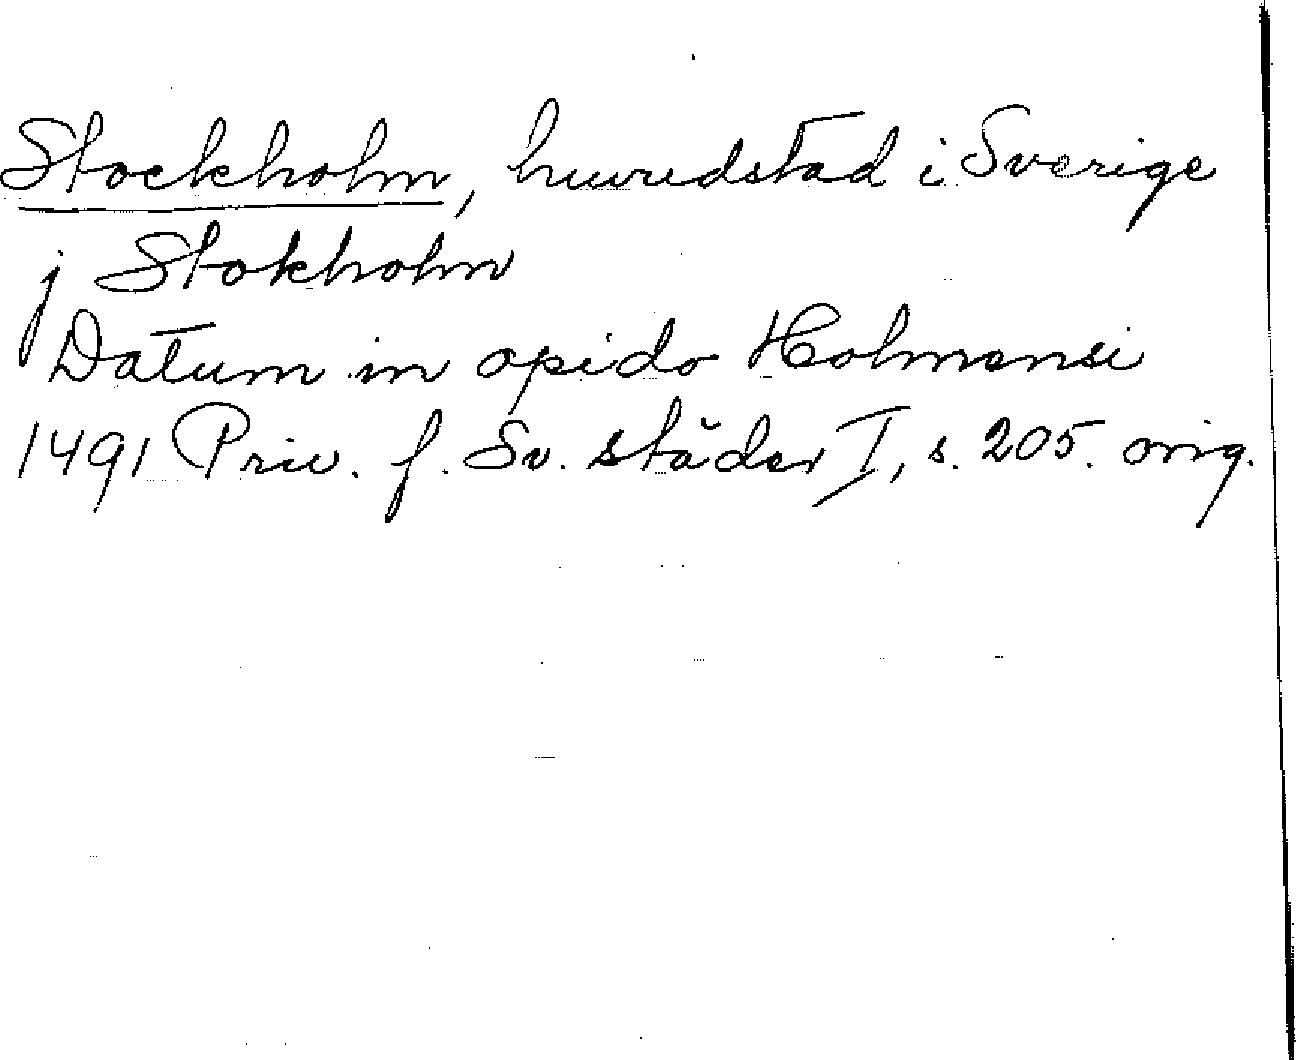 Stockholm, huvudstad i Sverige
j Stokholm
Datum in opido Holmensi
1491 Priv. f. Sv. städer I, s. 205. orig.